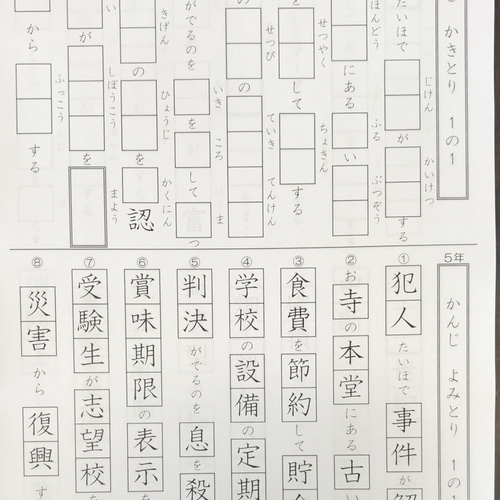 かきとり 1の1
たいほで じけん が かいけつ する
ほんどう にある ふる い ぶつぞう
せつやく して ちょきん する
せつび の ていき てんけん
がでるのを いき を ころ して ま つ
きげん の ひょうじ を かくにん 認
が しぼうこう を まよう
から ふっこう する
5年 かんじ よみとり 1の
① 犯人 たいほで 事件 が
② お 寺 の 本堂 にある 古 い
③ 食費 を 節約 して 貯
④ 学校 の 設備 の 定期
⑤ 判決 がでるのを 息 を 殺
⑥ 賞味期限 の 表示 を
⑦ 受験生 が 志望校 を
⑧ 災害 から 復興 す